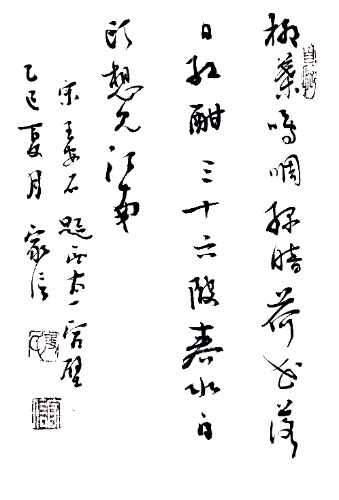 柳葉鳴蜩綠暗荷花落
日紅酣三十六陂春水白
頭想見江南
宋王安石題西太一宮壁
乙巳夏月家信